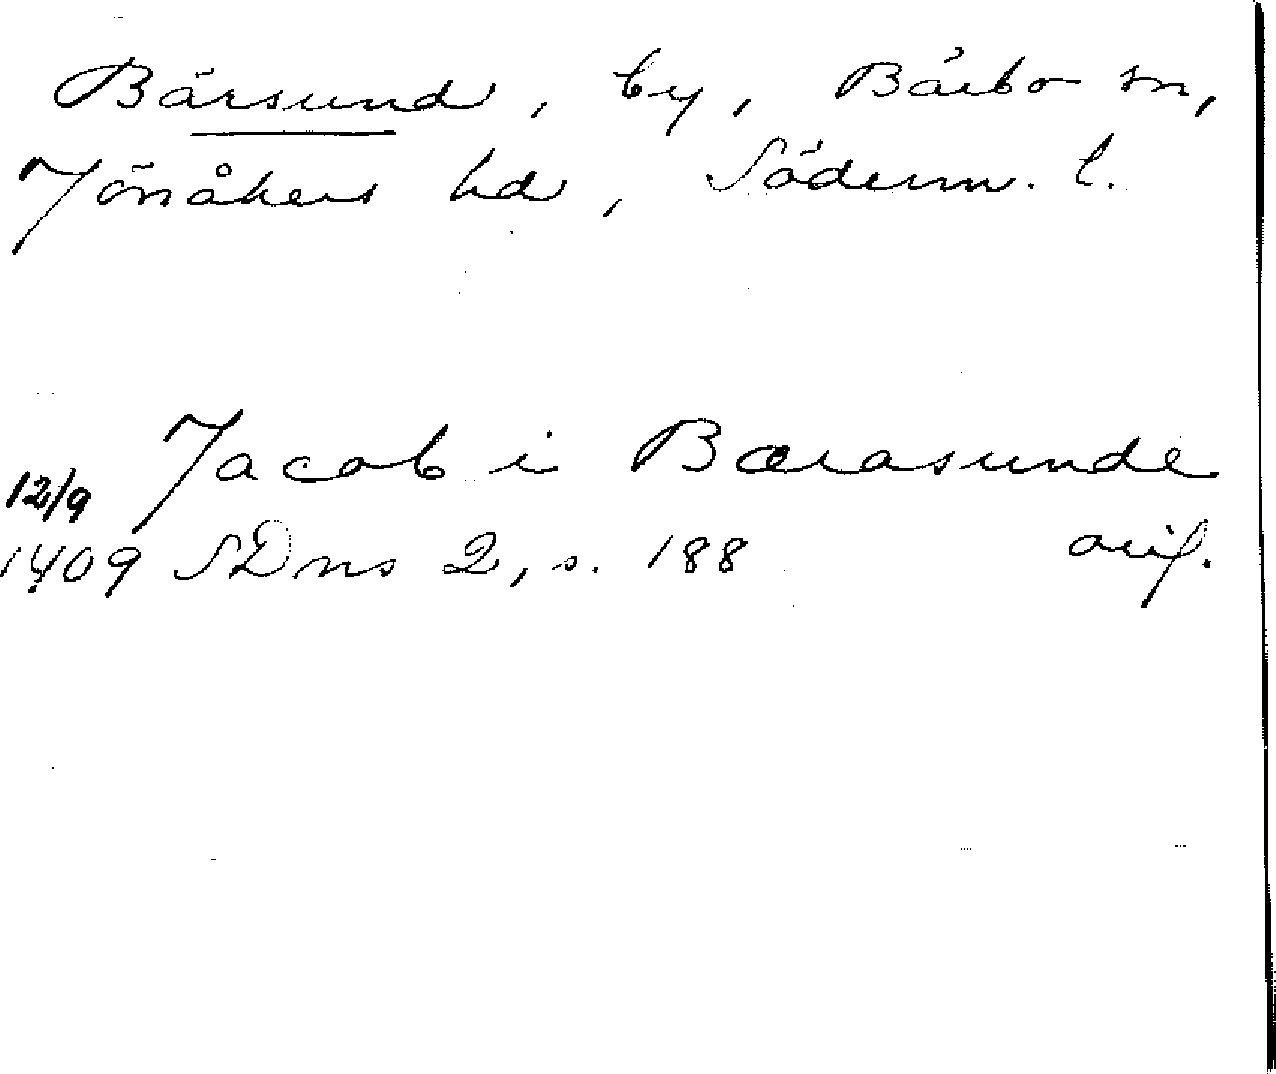 Bärsund, by, Bärbo sn,
Jönåkers hd, Söderm. l.
Jacob i Bærasunde
12/9
1409 SDns 2, s. 188 avif.